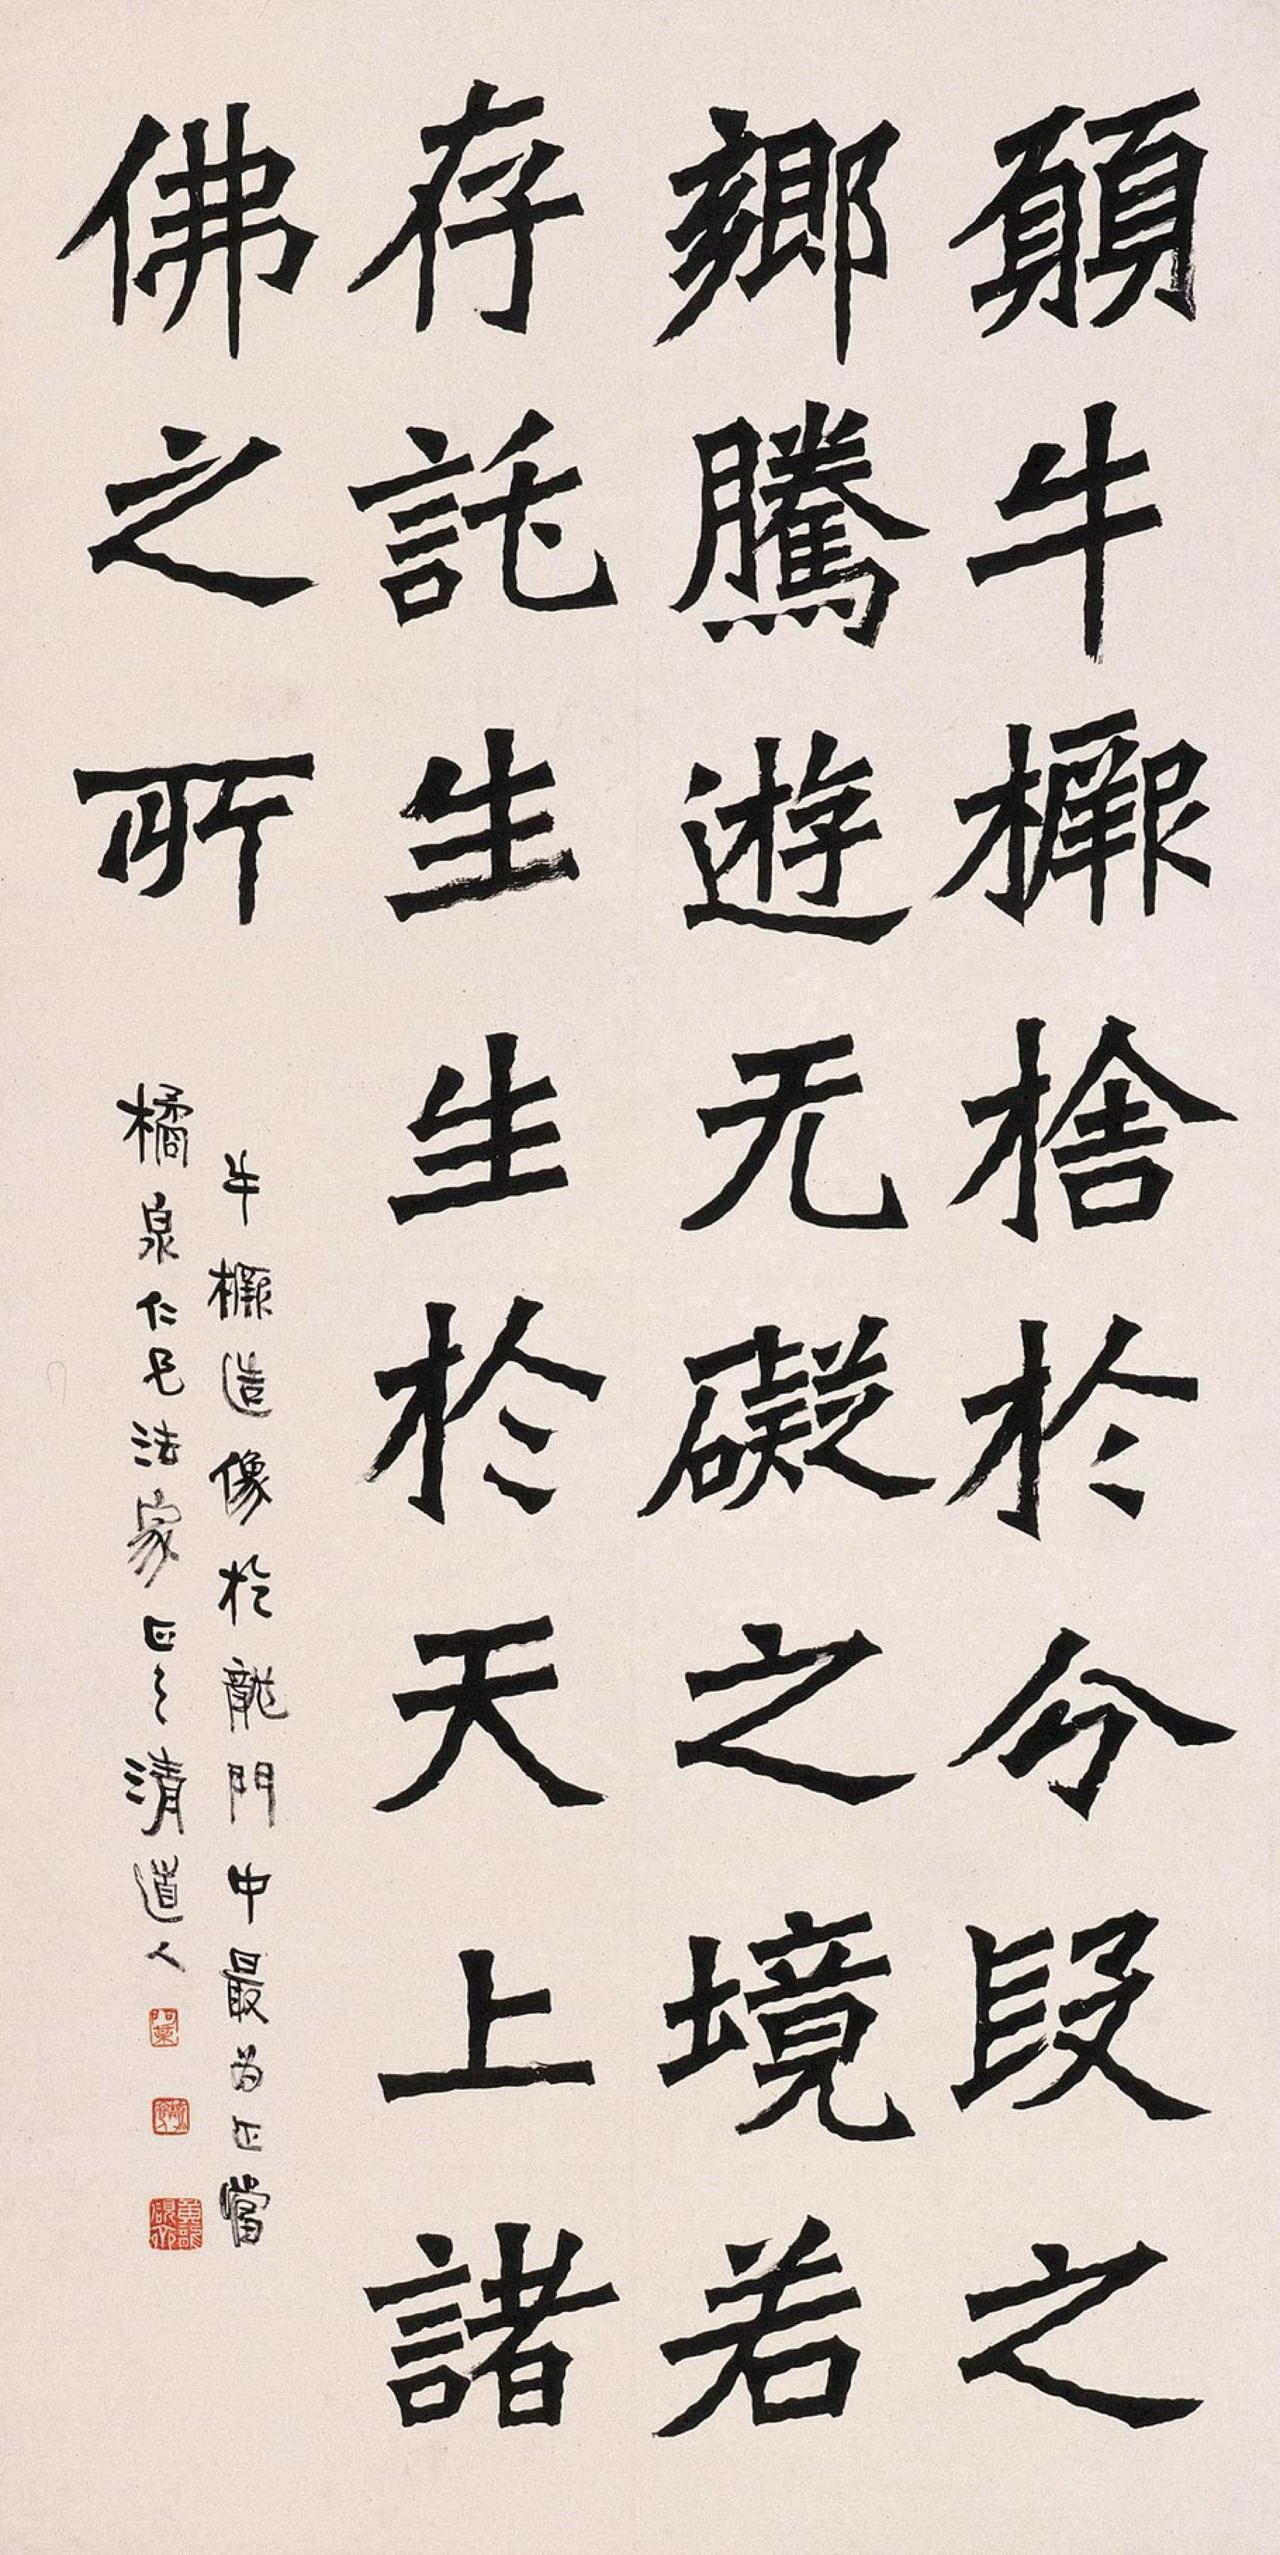 願牛橛捨於分段之
鄉騰遊无礙之境若
存託生生於天上諸
佛之所
牛橛造像於龍門中最為正當
橘泉仁兄法家正之清道人